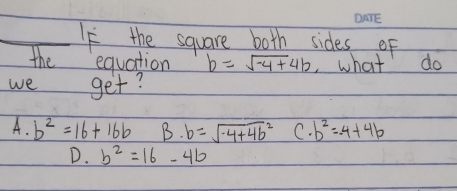 DATE
IF the square both sides of
the equation b = √-4+4b, what do
we get?
A. b² = 16 + 16b B. b = √-4+4b² C. b² = -4+4b
D. b² = 16 - 4b